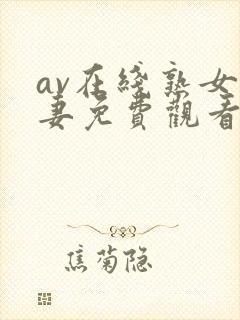 av在綫熟女
妻免費觀看
焦菊隐